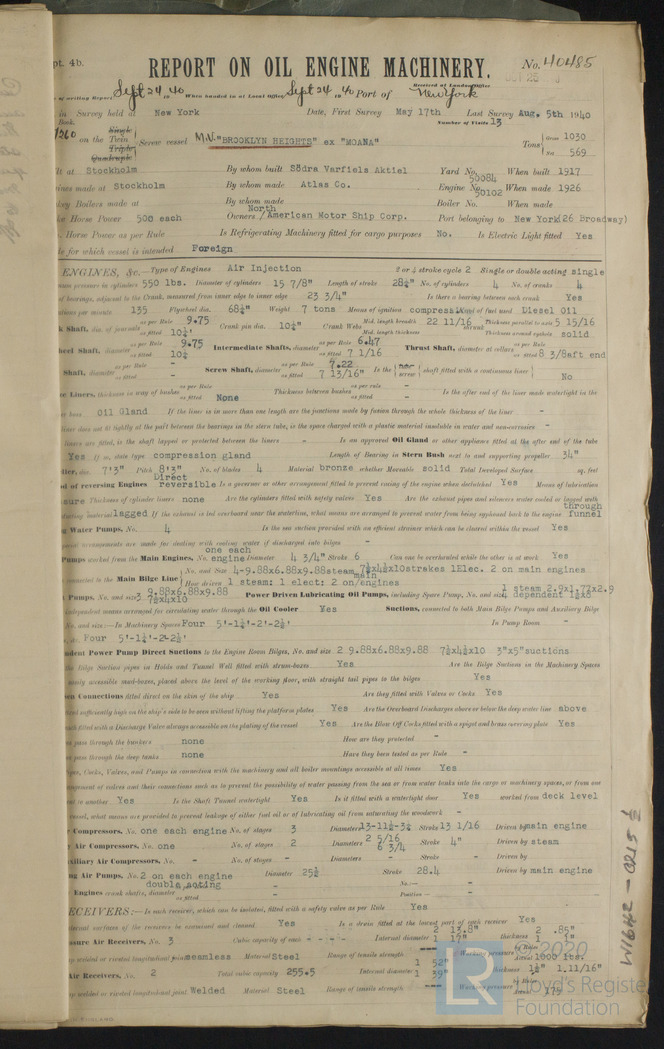 pt. 4b.
REPORT ON OIL ENGINE MACHINERY.
No. 40485
Received at London Office
of writing Report Sept 24 1940 When handed in at Local Office Sept 24 40 Port of New York
in Survey held at New York Date, First Survey May 17th Last Survey Aug. 5th 1940
Book. Number of Visits 13
1260 on the Single Twin Triple Quadruple Screw vessel M.V. "BROOKLYN HEIGHTS" ex "MOANA" Tons Gross 1030 Net 569
lt at Stockholm By whom built Södra Varfiels Aktiel Yard No. When built 1917
ines made at Stockholm By whom made Atlas Co. Engine No. 50084 50102 When made 1926
key Boilers made at By whom made Boiler No. When made
ke Horse Power 500 each Owners North American Motor Ship Corp. Port belonging to New York (26 Broadway)
. Horse Power as per Rule Is Refrigerating Machinery fitted for cargo purposes No. Is Electric Light fitted Yes
de for which vessel is intended Foreign
ENGINES, &c. Type of Engines Air Injection 2 or 4 stroke cycle 2 Single or double acting single
pressure in cylinders 550 lbs. Diameter of cylinders 15 7/8" Length of stroke 28¼" No. of cylinders 4 No. of cranks 4
of bearings, adjacent to the Crank, measured from inner edge to inner edge 23 3/4" Is there a bearing between each crank Yes
utions per minute 135 Flywheel dia. 68¼" Weight 7 tons Means of ignition compression Kind of fuel used Diesel Oil
k Shaft, dia. of journals as per Rule 9.75 as fitted 10¼" Crank pin dia. 10¼" Crank Webs Mid. length breadth 22 11/16 Mid. length thickness Thickness parallel to axis 5 15/16 Thickness around eyehole solid
heel Shaft, diameter as per Rule 9.75 as fitted 10¼ Intermediate Shafts, diameter as per Rule 6.47 as fitted 7 1/16 Thrust Shaft, diameter at collars as per Rule as fitted 8 3/8 aft end
Shaft, diameter as per Rule - as fitted - Screw Shaft, diameter as per Rule 7.22 as fitted 7 13/16" Is the screw shaft fitted with a continuous liner No
ze Liners, thickness in way of bushes as per Rule - as fitted None Thickness between bushes as per rule - as fitted - Is the after end of the liner made watertight in the
er boss Oil Gland If the liner is in more than one length are the junctions made by fusion through the whole thickness of the liner -
liner does not fit tightly at the part between the bearings in the stern tube, is the space charged with a plastic material insoluble in water and non-corrosive -
liners are fitted, is the shaft lapped or protected between the liners - Is an approved Oil Gland or other appliance fitted at the after end of the tube
Yes If so, state type compression gland Length of Bearing in Stern Bush next to and supporting propeller 34"
ller, dia. 7'3" Pitch 8'x" No. of blades 4 Material bronze whether Moveable solid Total Developed Surface sq. feet
od of reversing Engines Direct reversible Is a governor or other arrangement fitted to prevent racing of the engine when declutched Yes Means of lubrication
sure Thickness of cylinder liners none Are the cylinders fitted with safety valves Yes Are the exhaust pipes and silencers water cooled or lagged with
lagged If the exhaust is led overboard near the waterline, what means are arranged to prevent water from being syphoned back to the engine through funnel
g Water Pumps, No. 4 Is the sea suction provided with an efficient strainer which can be cleared within the vessel Yes
special arrangements are made for dealing with cooling water if discharged into bilges -
Pumps worked from the Main Engines, No. one each engine Diameter 4 3/4" Stroke 6 Can one be overhauled while the other is at work Yes
connected to the Main Bilge Line No. and Size 4-9.88x6.88x9.88 steam 7½x4½x10 strokes 1Elec. 2 on main engines
How driven 1 steam: 1 elect: 2 on main/engines
t Pumps, No. and size 2 9.88x6.88x9.88 7½x4x10 Power Driven Lubricating Oil Pumps, including Spare Pump, No. and size 1 steam 2.9x1.72x2.9
independent means arranged for circulating water through the Oil Cooler Yes Suctions, connected to both Main Bilge Pumps and Auxiliary Bilge
No. and size:-In Machinery Spaces Four 5'-1¼'-2'-2½' In Pump Room -
, &c. Four 5'-1¼'-2-2½'
ndent Power Pump Direct Suctions to the Engine Room Bilges, No. and size 2 9.88x6.88x9.88 7½x4½x10 3"x5" suctions
the Bilge Suction pipes in Holds and Tunnel Well fitted with strum-boxes Yes Are the Bilge Suctions in the Machinery Spaces
easily accessible mud-boxes, placed above the level of the working floor, with straight tail pipes to the bilges Yes
ea Connections fitted direct on the skin of the ship Yes Are they fitted with Valves or Cocks Yes
fitted sufficiently high on the ship's side to be seen without lifting the platform plates Yes Are the Overboard Discharges above or below the deep water line above
each fitted with a Discharge Valve always accessible on the plating of the vessel Yes Are the Blow Off Cocks fitted with a spigot and brass covering plate Yes
es pass through the bunkers none How are they protected -
es pass through the deep tanks none Have they been tested as per Rule -
ipes, Cocks, Valves, and Pumps in connection with the machinery and all boiler mountings accessible at all times Yes
angement of valves and their connections such as to prevent the possibility of water passing from the sea or from water tanks into the cargo or machinery spaces, or from one
ent to another Yes Is the Shaft Tunnel watertight Yes Is it fitted with a watertight door Yes worked from deck level
vessel, what means are provided to prevent leakage of either fuel oil or of lubricating oil from saturating the woodwork -
r Compressors, No. one each engine No. of stages 3 Diameters 13-11½-3½ Stroke 13 1/16 Driven by main engine
y Air Compressors, No. one No. of stages 2 Diameters 2 5/16 6 3/4 Stroke 4" Driven by steam
xiliary Air Compressors, No. - No. of stages - Diameters - Stroke - Driven by
ng Air Pumps, No. 2 on each engine double acting Diameter 25½ Stroke 28.4 Driven by main engine
Engines crank shafts, diameter as fitted - No. - Position -
RECEIVERS:- Is each receiver, which can be isolated, fitted with a safety valve as per Rule Yes
ternal surfaces of the receivers be examined and cleaned Yes Is a drain fitted at the lowest part of each receiver Yes
ssure Air Receivers, No. 3 Cubic capacity of each - - - - Internal diameter thickness
p welded or riveted longitudinal joint seamless Material Steel Range of tensile strength Working pressure by Rules Actual 1000 lbs.
Air Receivers, No. 2 Total cubic capacity 255.5 Internal diameter 1 52" 1 39" thickness 1½" 1.11/16"
ap welded or riveted longitudinal joint Welded Material Steel Range of tensile strength Working pressure by Rules Actual 175
W1642-0215½
© 2020
LR
Lloyd's Register
Foundation